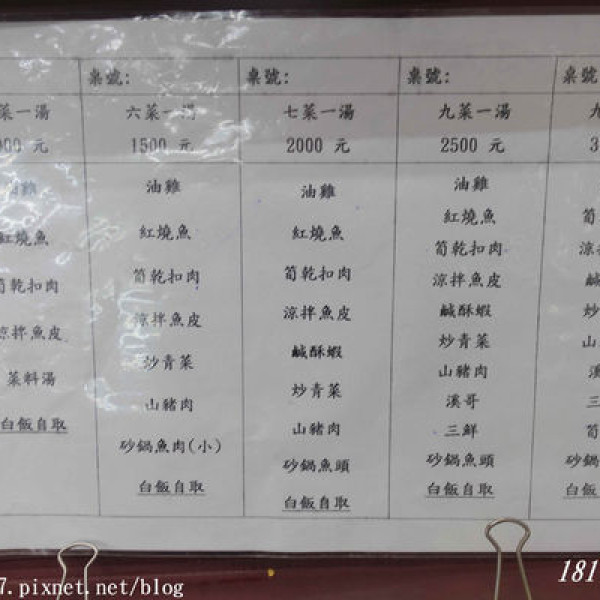 桌號:
桌號:
桌號:
桌號
菜一湯
000 元
油雞
紅燒魚
筍乾扣肉
涼拌魚皮
菜料湯
白飯自取
六菜一湯
1500 元
油雞
紅燒魚
筍乾扣肉
涼拌魚皮
炒青菜
山豬肉
砂鍋魚肉(小)
白飯自取
七菜一湯
2000 元
油雞
紅燒魚
筍乾扣肉
涼拌魚皮
鹹酥蝦
炒青菜
山豬肉
砂鍋魚頭
白飯自取
九菜一湯
2500 元
油雞
紅燒魚
筍乾扣肉
涼拌魚皮
鹹酥蝦
炒青菜
山豬肉
溪哥
三鮮
砂鍋魚頭
白飯自取
九
3
筍
涼
鹹
炒
山
溪
三
筍
砂鍋
白飯
7.pixnet.net/blog
181